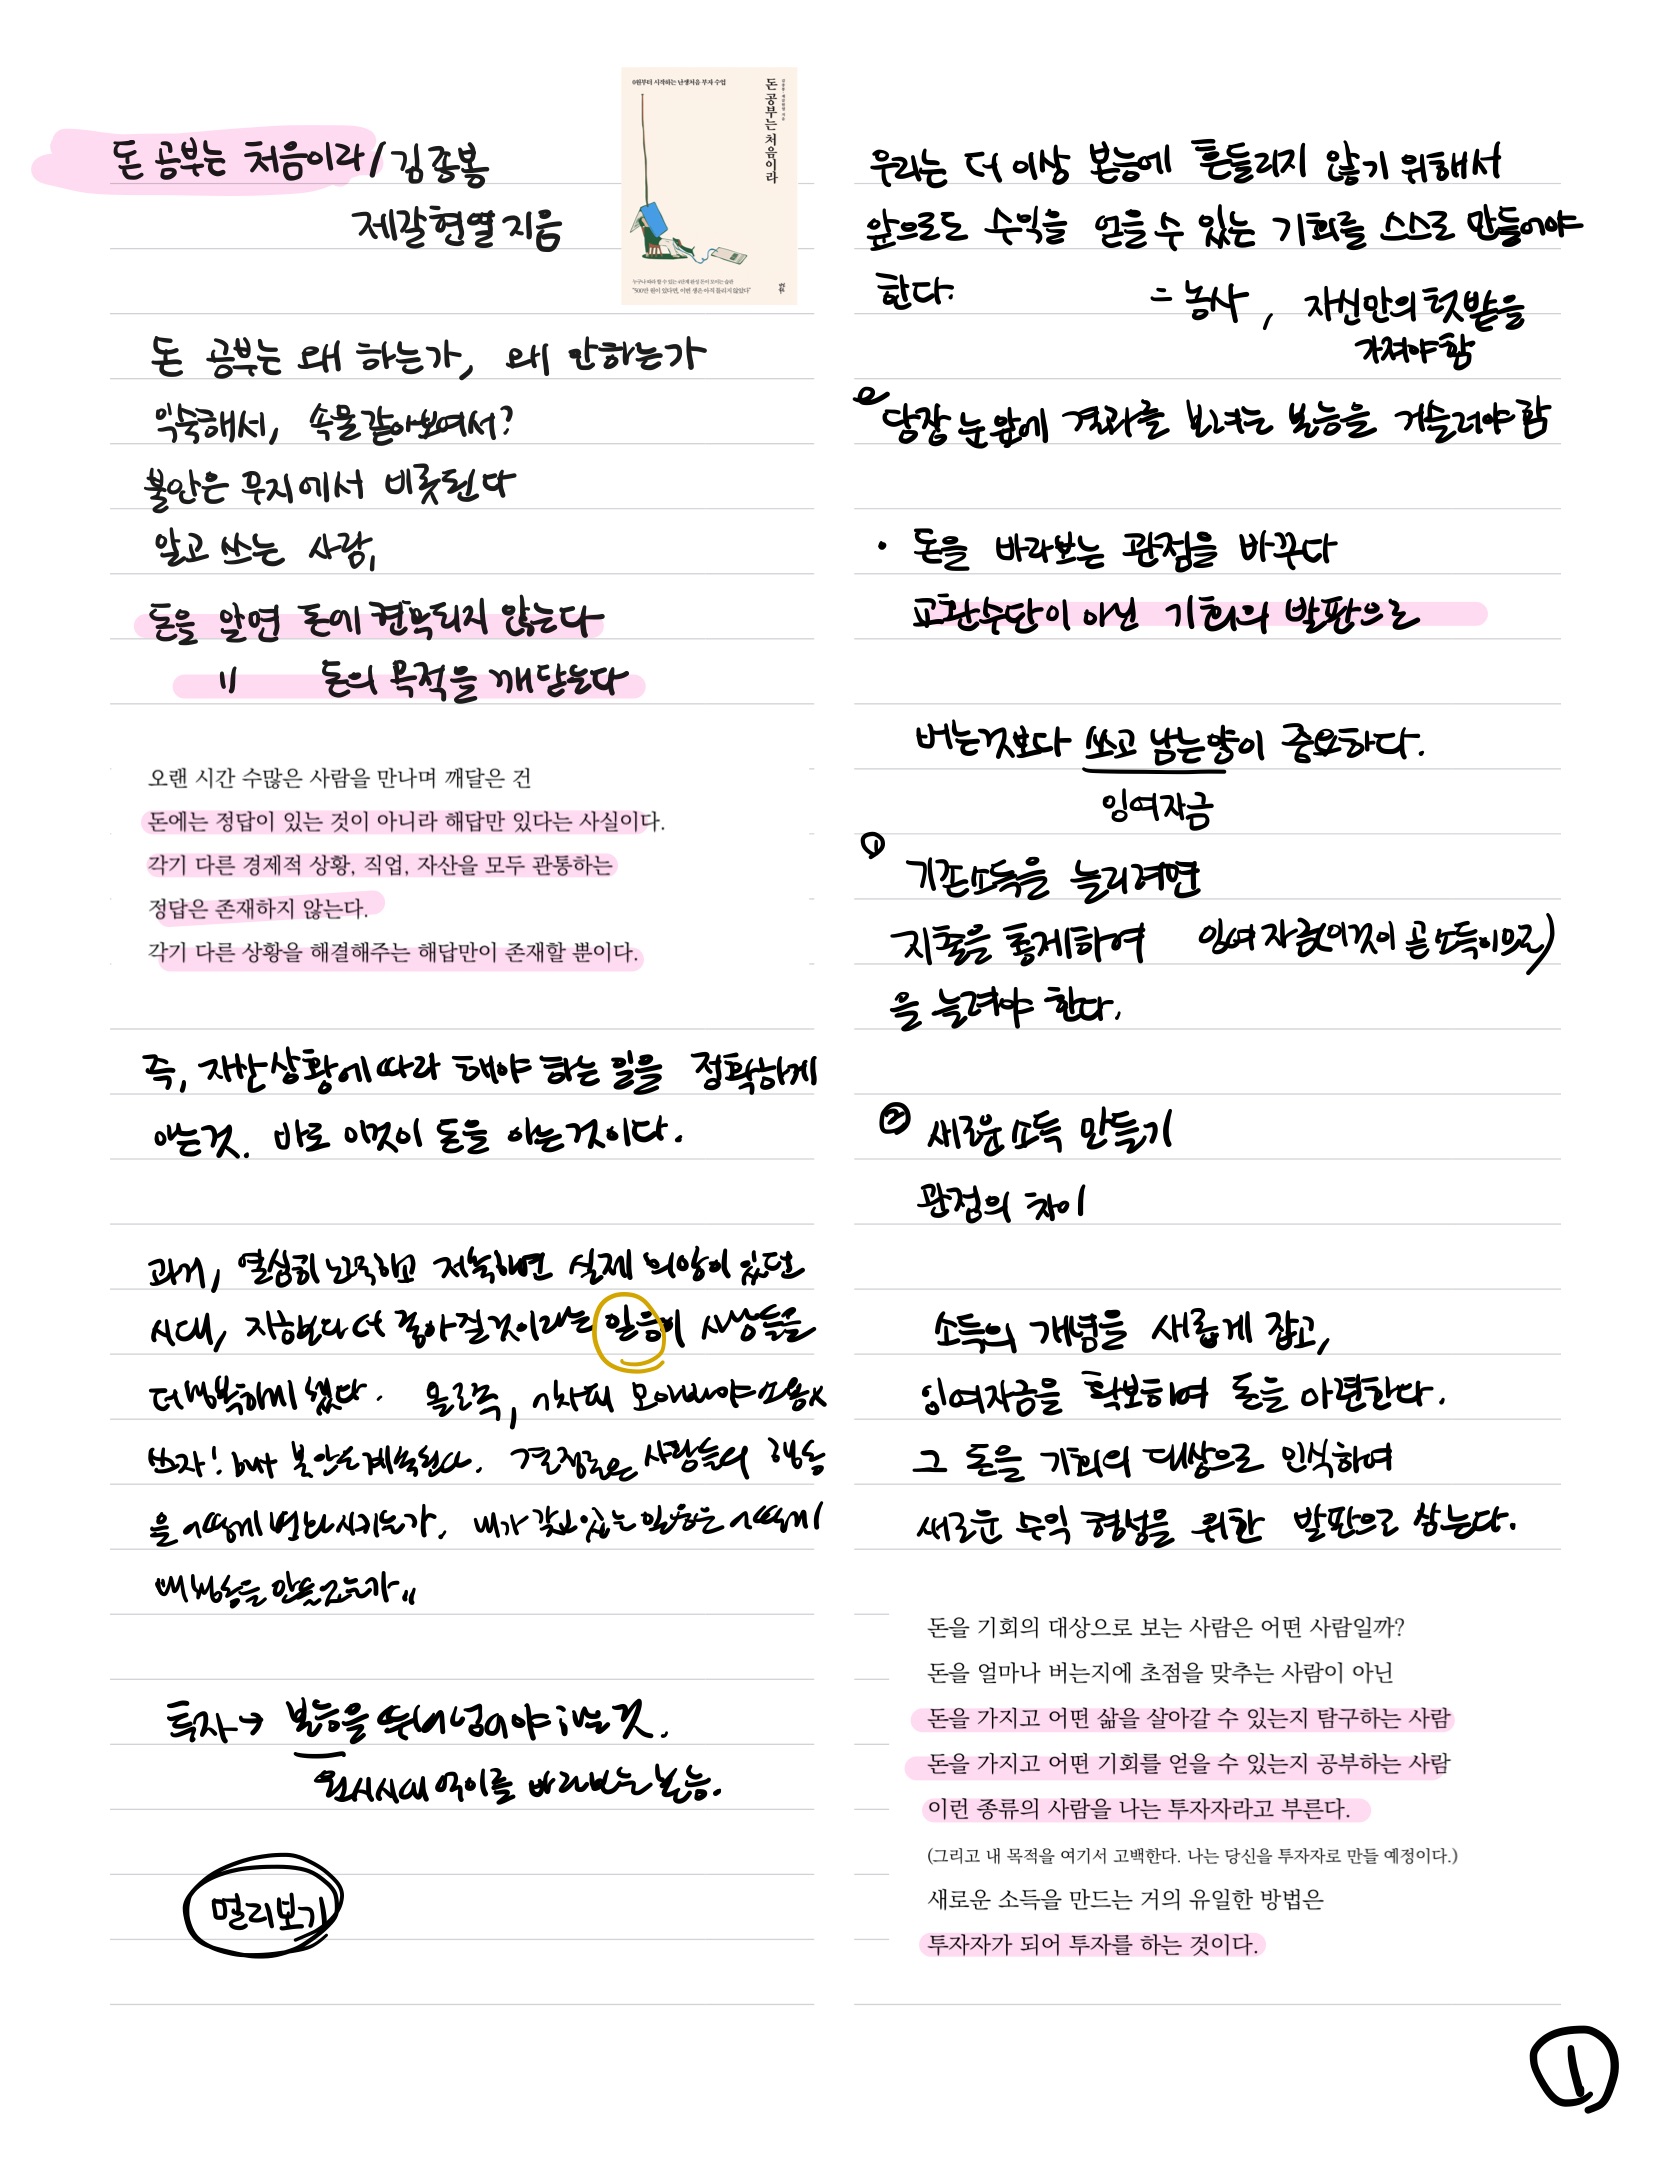 돈 공부는 처음이라 / 김종봉
제갈현열 지음
0원부터 시작하는 난생처음 부자 수업
돈 공부는 처음이라
"500만 원이 있다면, 이번 생은 아직 틀리지 않았다"
돈 공부는 왜 하는가, 왜 안하는가
익숙해서, 속물같아보여서?
불안은 무지에서 비롯된다
알고 쓰는 사람,
돈을 알면 돈에 현혹되지 않는다
〃 돈의 목적을 깨닫는다
오랜 시간 수많은 사람을 만나며 깨달은 건
돈에는 정답이 있는 것이 아니라 해답만 있다는 사실이다.
각기 다른 경제적 상황, 직업, 자산을 모두 관통하는
정답은 존재하지 않는다.
각기 다른 상황을 해결해주는 해답만이 존재할 뿐이다.
즉, 자산상황에 따라 해야 하는 일을 정확하게
아는것. 바로 이것이 돈을 아는것이다.
과거, 열심히 노력하고 저축하면 실제 희망이 있던
시대, 지금보다 더 좋아질것이라는 믿음이 사람들을
더 행복하게 했다. 욜로족, 어차피 모아봐야 소용x
쓰자! but 불안은 계속된다. 결정론은 사람들의 행동
을 어떻게 변화시키는가. 내가 갖고있는 믿음은 어떻게
내 행동을 만들고는가〃
투자→ 본능을 뛰어넘어야 하는 것.
원시시대 먹이를 바라보는 본능.
멀리보기
우리는 더 이상 본능에 흔들리지 않기 위해서
앞으로도 수익을 얻을 수 있는 기회를 스스로 만들어야
한다. = 농사, 자신만의 텃밭을
가져야함
당장 눈앞에 결과를 보려는 본능을 거슬러야 함
· 돈을 바라보는 관점을 바꾸다
교환수단이 아닌 기회의 발판으로
버는것보다 쓰고 남는양이 중요하다.
잉여자금
① 기존소득을 늘리려면
지출을 통제하여 잉여자금(이것이 곧 소득이므로)
을 늘려야 한다.
② 새로운 소득 만들기
관점의 차이
소득의 개념을 새롭게 잡고,
잉여자금을 확보하여 돈을 마련한다.
그 돈을 기회의 대상으로 인식하여
새로운 수익 형성을 위한 발판으로 삼는다.
돈을 기회의 대상으로 보는 사람은 어떤 사람일까?
돈을 얼마나 버는지에 초점을 맞추는 사람이 아닌
돈을 가지고 어떤 삶을 살아갈 수 있는지 탐구하는 사람
돈을 가지고 어떤 기회를 얻을 수 있는지 공부하는 사람
이런 종류의 사람을 나는 투자자라고 부른다.
(그리고 내 목적을 여기서 고백한다. 나는 당신을 투자자로 만들 예정이다.)
새로운 소득을 만드는 거의 유일한 방법은
투자자가 되어 투자를 하는 것이다.
①